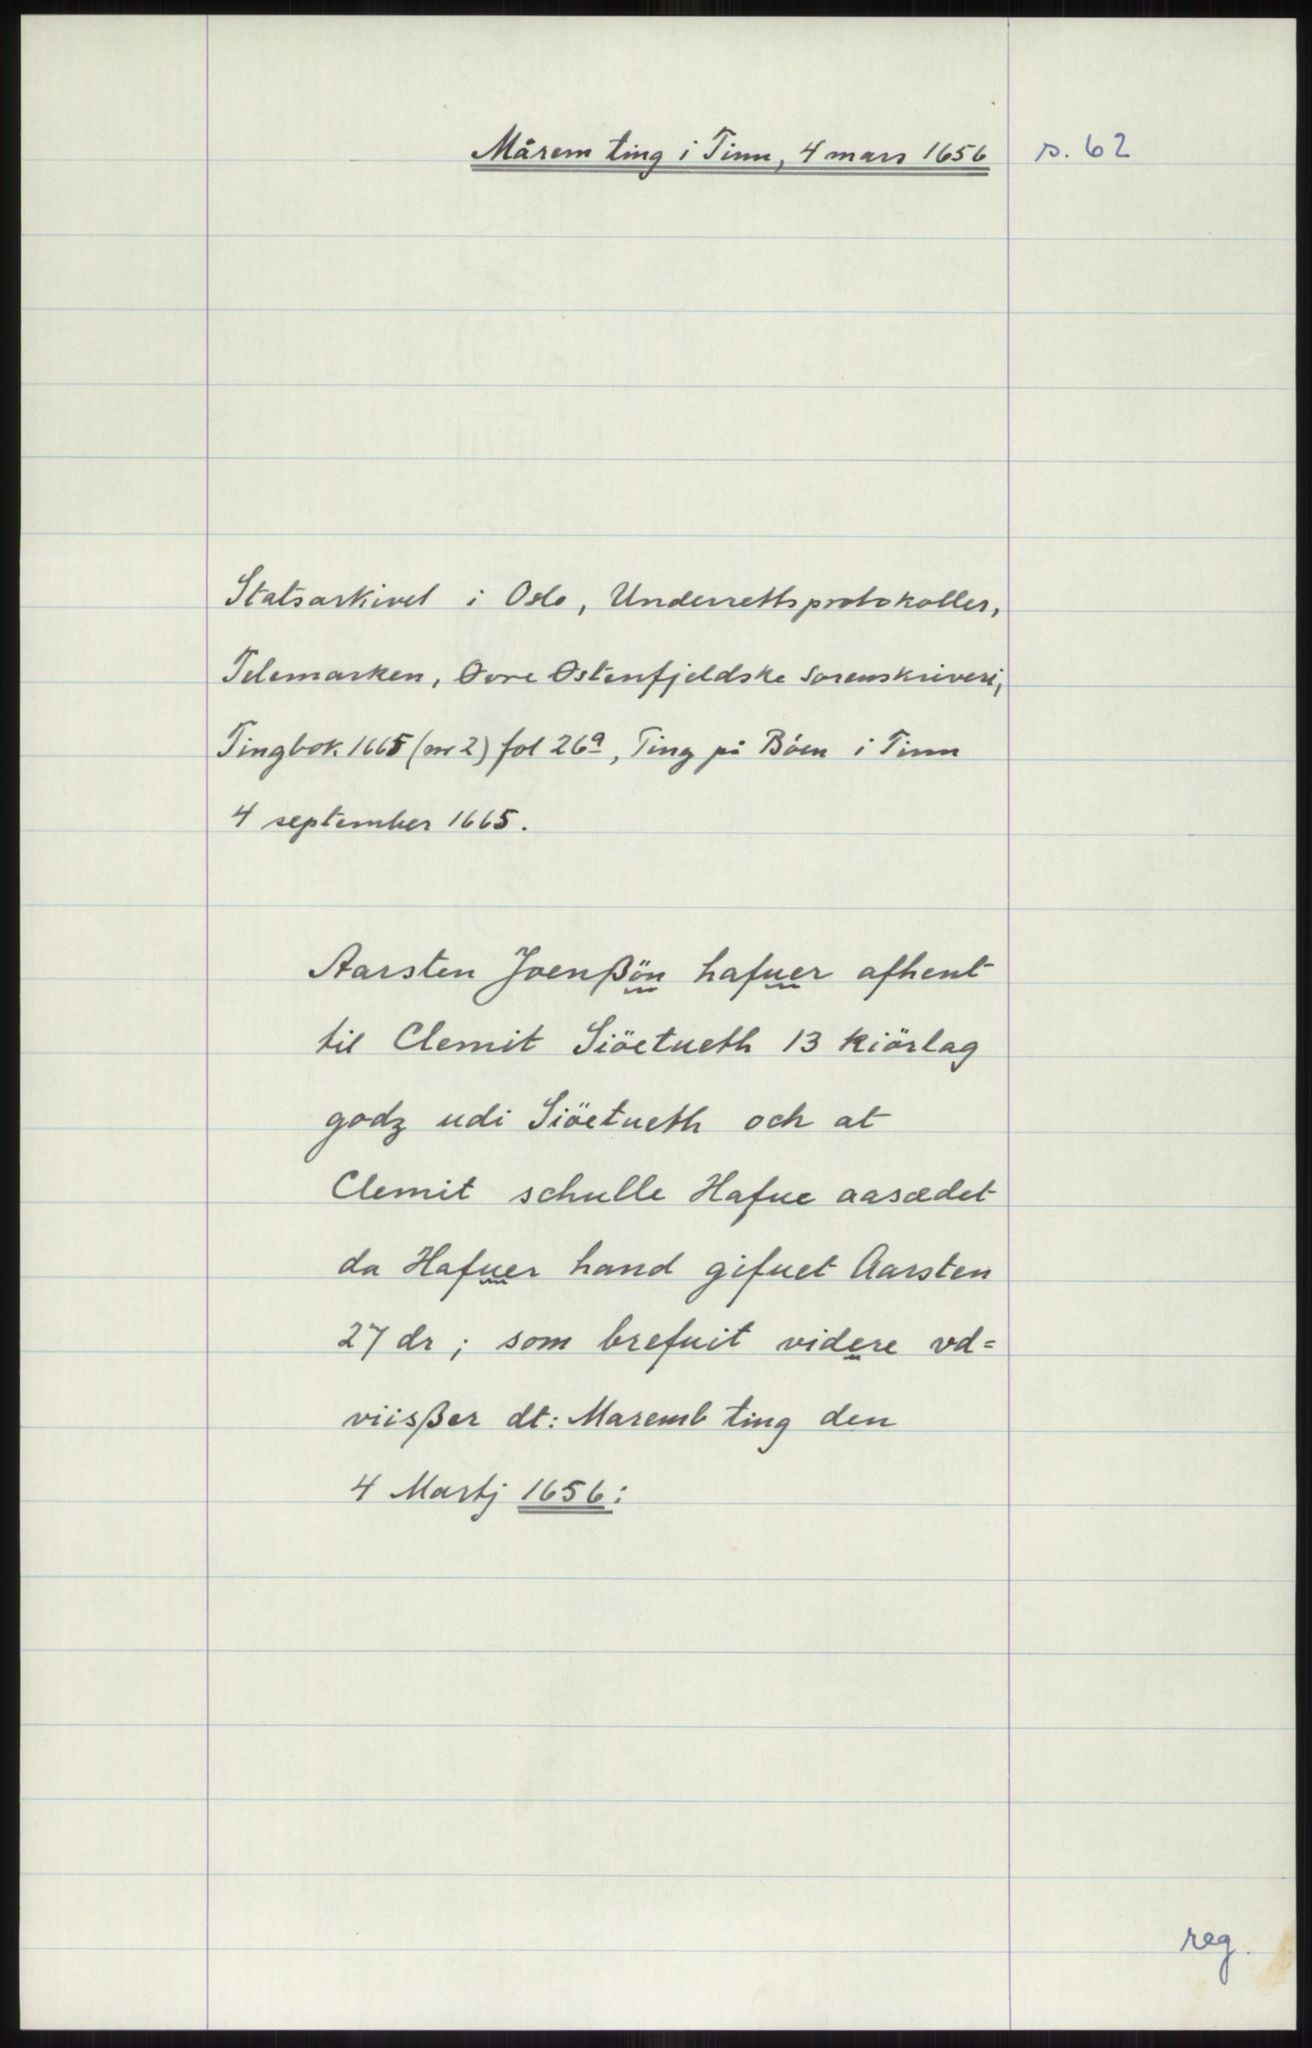 Mårem ting i Tinn, 4 mars 1656
s. 62
Statsarkivet i Oslo, Underrettsprotokoller,
Telemarken, Øvre Østenfjeldske sorenskriveri,
Tingbok 1665 (nr 2) fol 26a, Ting på Bøen i Tinn
4 september 1665.
Aarsten Joenßön hafuer afhent
til Clemit Siöetueth 13 kiörlag
godz udi Siöetueth och at
Clemit schulle Hafue aasædet
da Hafuer hand gifuet Aarsten
27 dr ; som brefuit videre vd=
viisßer dt: Maremb ting den
4 Martj 1656:
reg.